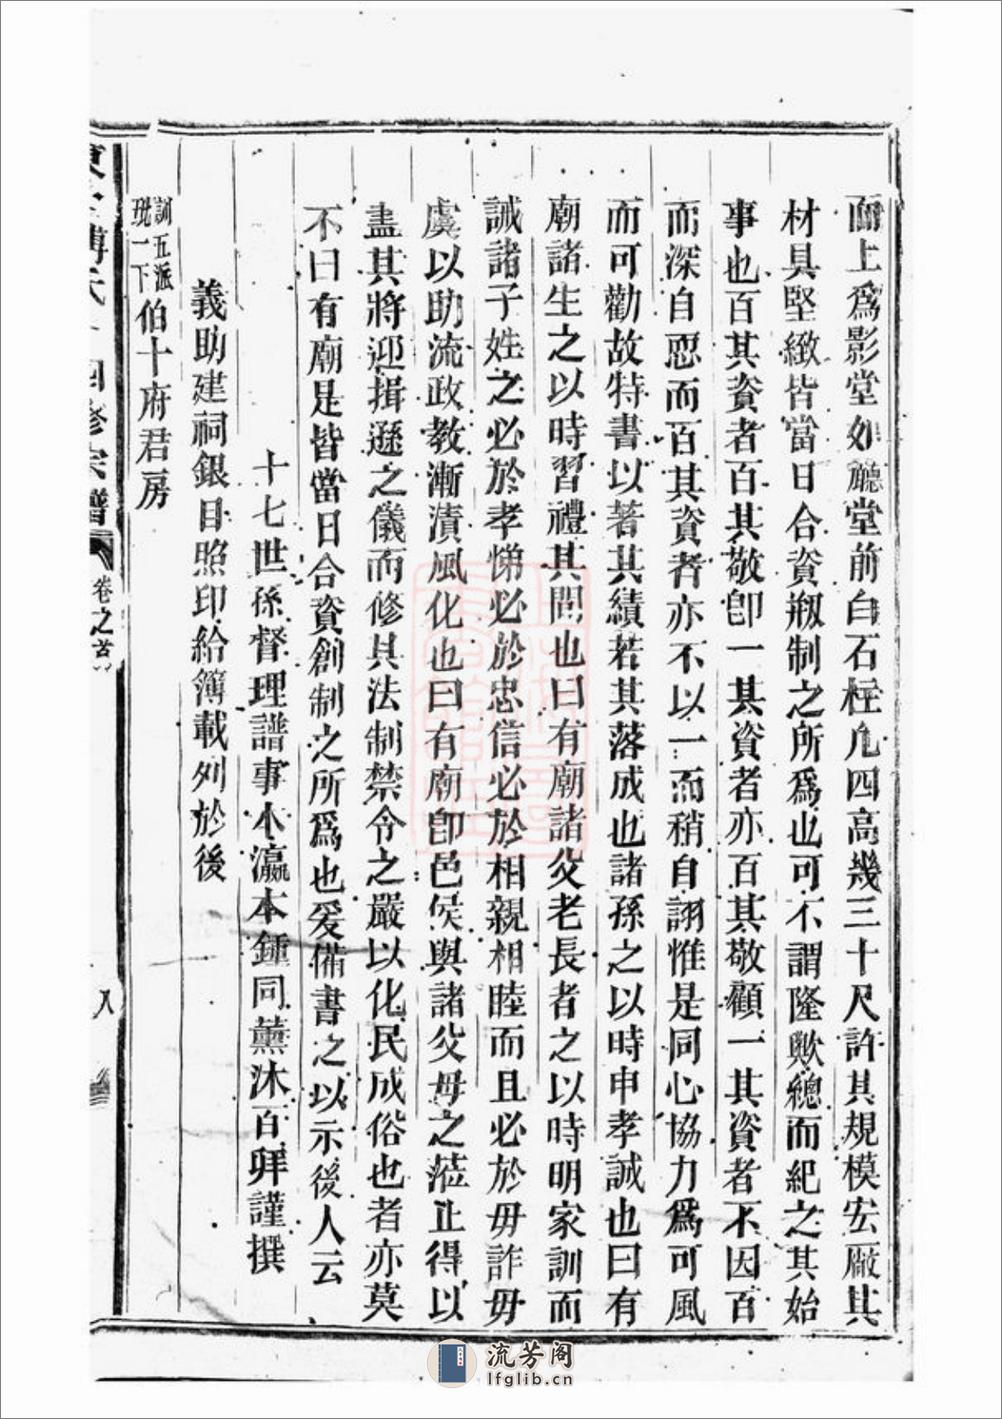 面上爲影堂如廳堂前白石柱凡四高幾三十尺許其規模宏厰其
材具堅緻皆當日合資剏制之所爲也可不謂隆歟總而紀之其始
事也百其資者百其敬卽一其資者亦百其敬顧一其資者不因百
而深自恧而百其資者亦不以一而稍自詡惟是同心協力爲可風
而可勸故特書以著其績若其落成也諸孫之以時申孝誠也曰有
廟諸生之以時習禮其間也曰有廟諸父老長者之以時明家訓而
誡諸子姓之必於孝悌必於忠信必於相親相睦而且必於毋詐毋
虞以助流政教漸漬風化也曰有廟卽邑侯與諸父母之蒞止得以
盡其將迎揖遜之儀而修其法制禁令之嚴以化民成俗也者亦莫
不曰有廟是皆當日合資創制之所爲也爰備書之以示後人云
十七世孫督理譜事本瀛本鍾同薰沐百拜謹撰
義助建祠銀目照印給簿載列於後
訓五派
玭一下伯十府君房
傅氏 四修宗譜 卷之首 八
流芳阁
lfglib.cn